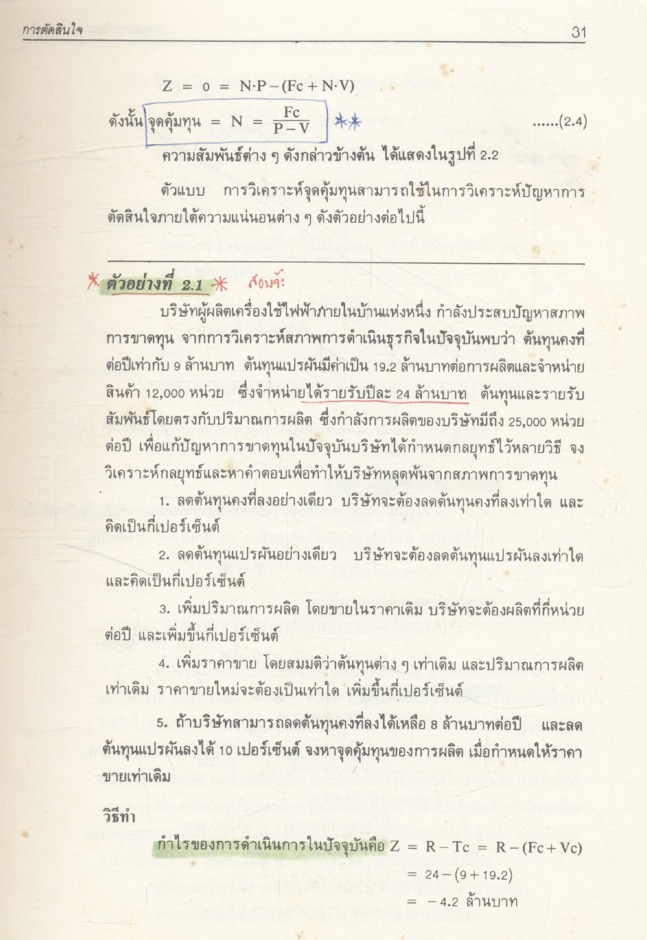 การตัดสินใจ 31
Z = 0 = N·P – (Fc + N·V)
ดังนั้น จุดคุ้มทุน = N = Fc / P – V ** ......(2.4)
ความสัมพันธ์ต่าง ๆ ดังกล่าวข้างต้น ได้แสดงในรูปที่ 2.2
ตัวแบบ การวิเคราะห์จุดคุ้มทุนสามารถใช้ในการวิเคราะห์ปัญหาการ
ตัดสินใจภายใต้ความแน่นอนต่าง ๆ ดังตัวอย่างต่อไปนี้
* ตัวอย่างที่ 2.1 * สอบจ้ะ
บริษัทผู้ผลิตเครื่องใช้ไฟฟ้าภายในบ้านแห่งหนึ่ง กำลังประสบปัญหาสภาพ
การขาดทุน จากการวิเคราะห์สภาพการดำเนินธุรกิจในปัจจุบันพบว่า ต้นทุนคงที่
ต่อปีเท่ากับ 9 ล้านบาท ต้นทุนแปรผันมีค่าเป็น 19.2 ล้านบาทต่อการผลิตและจำหน่าย
สินค้า 12,000 หน่วย ซึ่งจำหน่ายได้รายรับปีละ 24 ล้านบาท ต้นทุนและรายรับ
สัมพันธ์โดยตรงกับปริมาณการผลิต ซึ่งกำลังการผลิตของบริษัทมีถึง 25,000 หน่วย
ต่อปี เพื่อแก้ปัญหาการขาดทุนในปัจจุบันบริษัทได้กำหนดกลยุทธ์ไว้หลายวิธี จง
วิเคราะห์กลยุทธ์และหาคำตอบเพื่อทำให้บริษัทหลุดพ้นจากสภาพการขาดทุน
1. ลดต้นทุนคงที่ลงอย่างเดียว บริษัทจะต้องลดต้นทุนคงที่ลงเท่าใด และ
คิดเป็นกี่เปอร์เซ็นต์
2. ลดต้นทุนแปรผันอย่างเดียว บริษัทจะต้องลดต้นทุนแปรผันลงเท่าใด
และคิดเป็นกี่เปอร์เซ็นต์
3. เพิ่มปริมาณการผลิต โดยขายในราคาเดิม บริษัทจะต้องผลิตที่กี่หน่วย
ต่อปี และเพิ่มขึ้นกี่เปอร์เซ็นต์
4. เพิ่มราคาขาย โดยสมมติว่าต้นทุนต่าง ๆ เท่าเดิม และปริมาณการผลิต
เท่าเดิม ราคาขายใหม่จะต้องเป็นเท่าใด เพิ่มขึ้นกี่เปอร์เซ็นต์
5. ถ้าบริษัทสามารถลดต้นทุนคงที่ลงได้เหลือ 8 ล้านบาทต่อปี และลด
ต้นทุนแปรผันลงได้ 10 เปอร์เซ็นต์ จงหาจุดคุ้มทุนของการผลิต เมื่อกำหนดให้ราคา
ขายเท่าเดิม
วิธีทำ
กำไรของการดำเนินการในปัจจุบันคือ Z = R – Tc = R – (Fc + Vc)
= 24 – (9 + 19.2)
= – 4.2 ล้านบาท